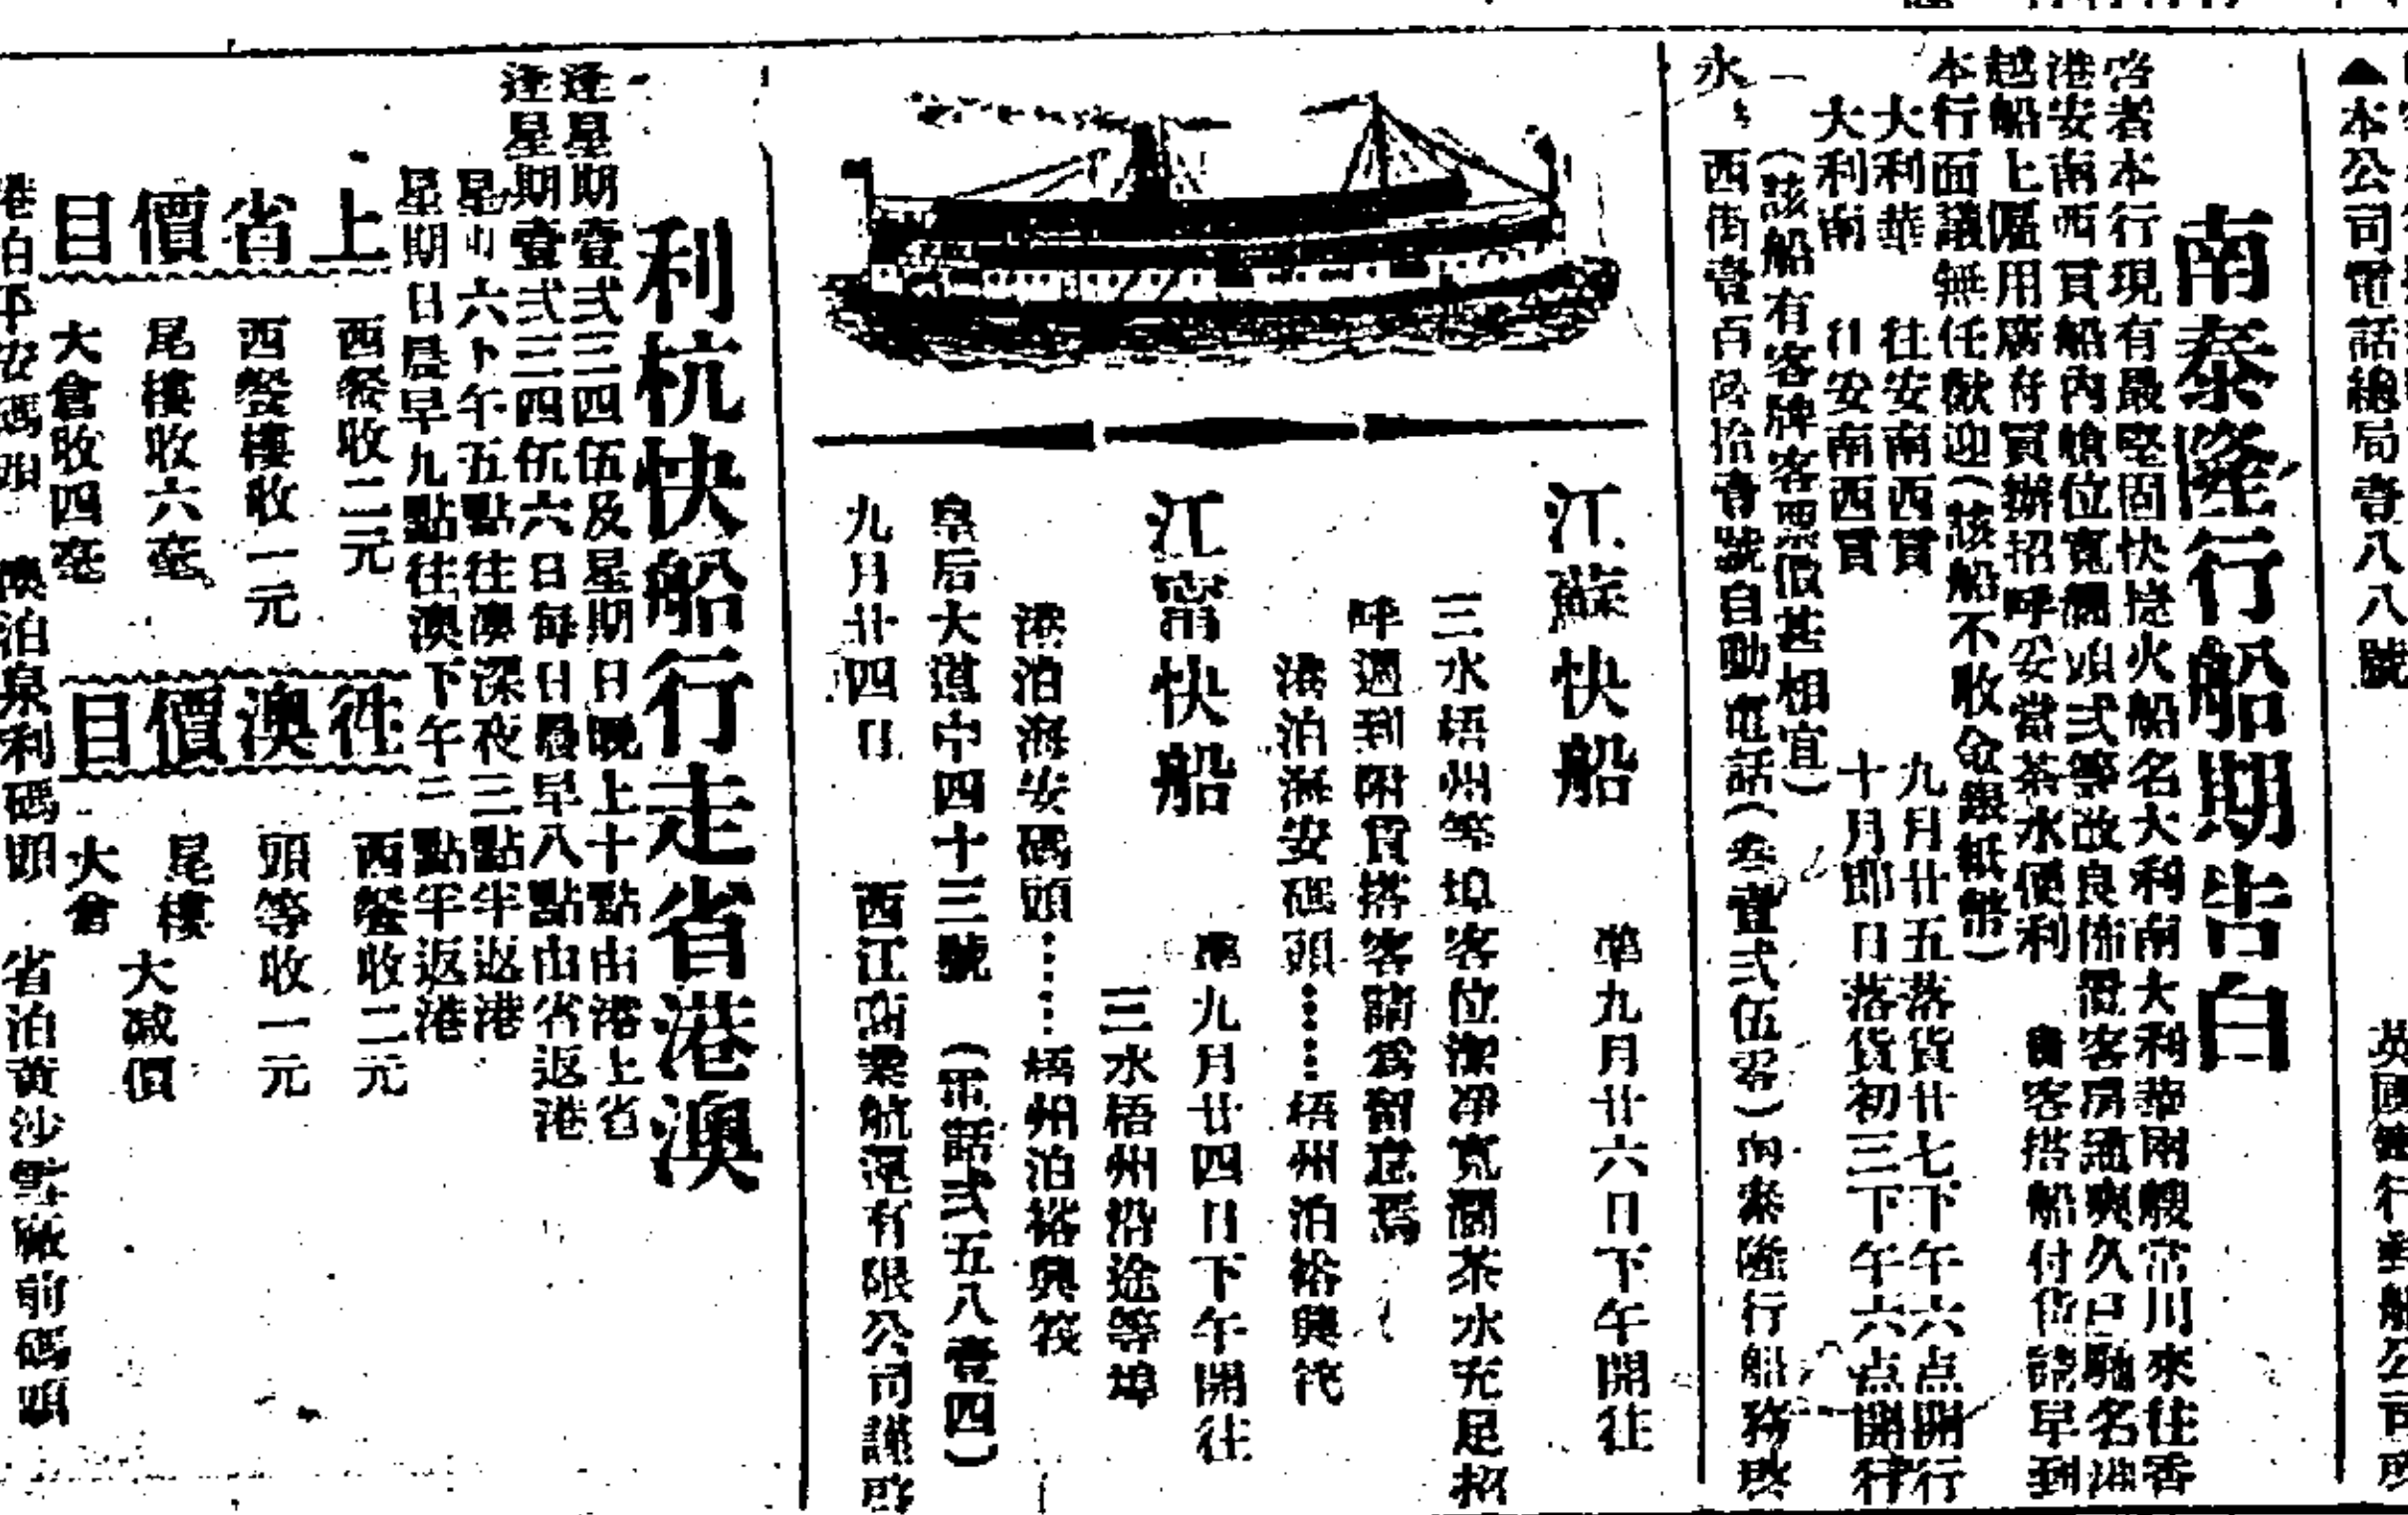 ▲本公司電話總局壹八八號
南泰隆行船期告白
啓者本行現有最堅固快捷火船名大利南大利華兩艘常川來往香
港安南西貢船內艙位寬闊頭弍等改良佈置客房通爽久已馳名港
越船上僱用廣府買辦招呼妥當茶水便利 貴客搭船付貨請早到
本行面議無任歡迎(該船不收金銀紙幣)
大利華 往安南西貢 九月廿五落貨廿七下午六点開行
大利南 往安南西貢 十月即日落貨初三下午六点開行
(該船有客牌客票價甚相宜)
永 西街壹百陸拾壹號自動電話(叁壹弍伍零)南泰隆行船務啓
江蘇快船 準九月廿六日下午開往
三水梧州等埠客位潔凈寬濶茶水充足招
呼週到附貨搭客請爲留意焉
港泊海安碼頭⋯⋯梧州泊裕興筏
江甯快船 準九月廿四日下午開往
三水梧州沿途等埠
港泊海安碼頭⋯⋯梧州泊裕興筏
皇后大道中四十三號 (電話弍五八壹四)
九月廿四日 西江商業航運有限公司謹啓
利杭快船行走省港澳
逢星期壹弍三四伍及星期日晚上十點由港上省
逢星期壹弍三四伍六日每日晨早八點由省返港
星期六下午五點往澳深夜三點半返港
星期日晨早九點往澳下午三點半返港
上省價目
西餐收二元
西餐樓收一元
尾樓收六毫
大倉收四毫
往澳價目
西餐收二元
頭等收一元
尾樓
大倉
大減價
港泊平安碼頭 澳泊泉利碼頭 省泊黃沙雪廠前碼頭